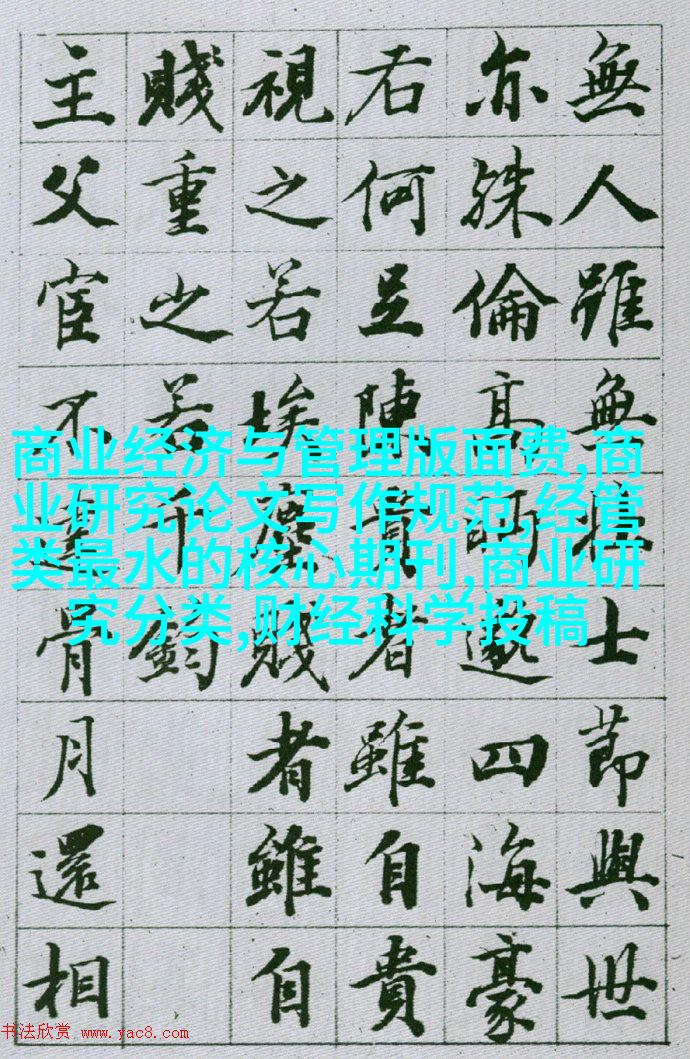 無人雖無壯士節與世
亦殊倫高眄邈四海豪
右何足陳貴者雖自貴
視之若埃塵賤者雖自
賤重之若千鈞
主父宦不達骨月還相
商业经济与管理版面费,商
业研究论文写作规范,经管
类最水的核心期刊,商业研
究分类,财经科学投稿
书法欣赏 www.yac8.com